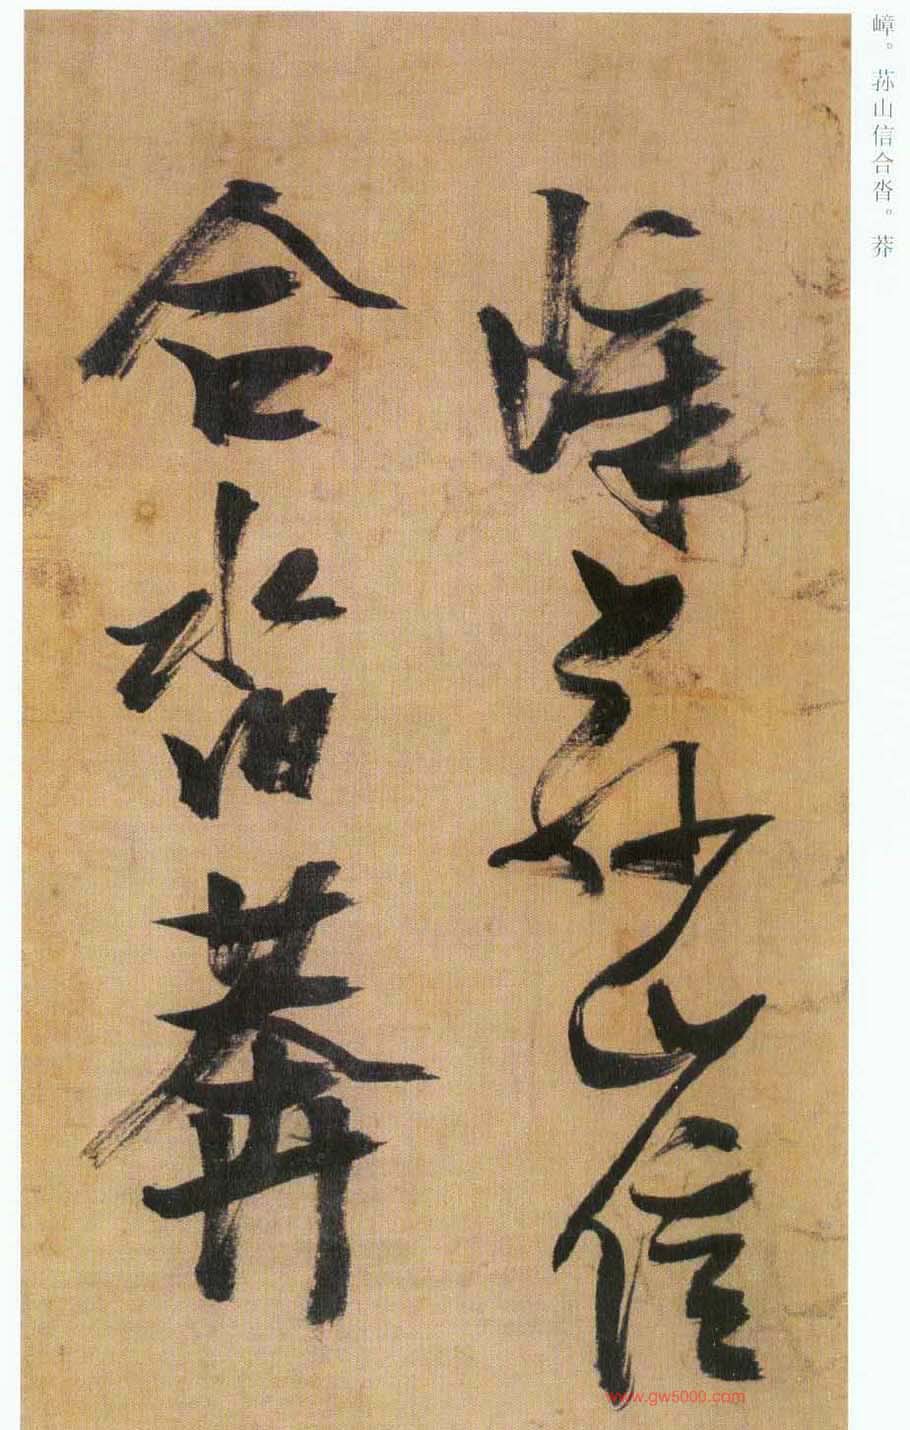 嶂。荪山信合沓。莽
嶂荪山信
合沓莽
www.gw5000.com